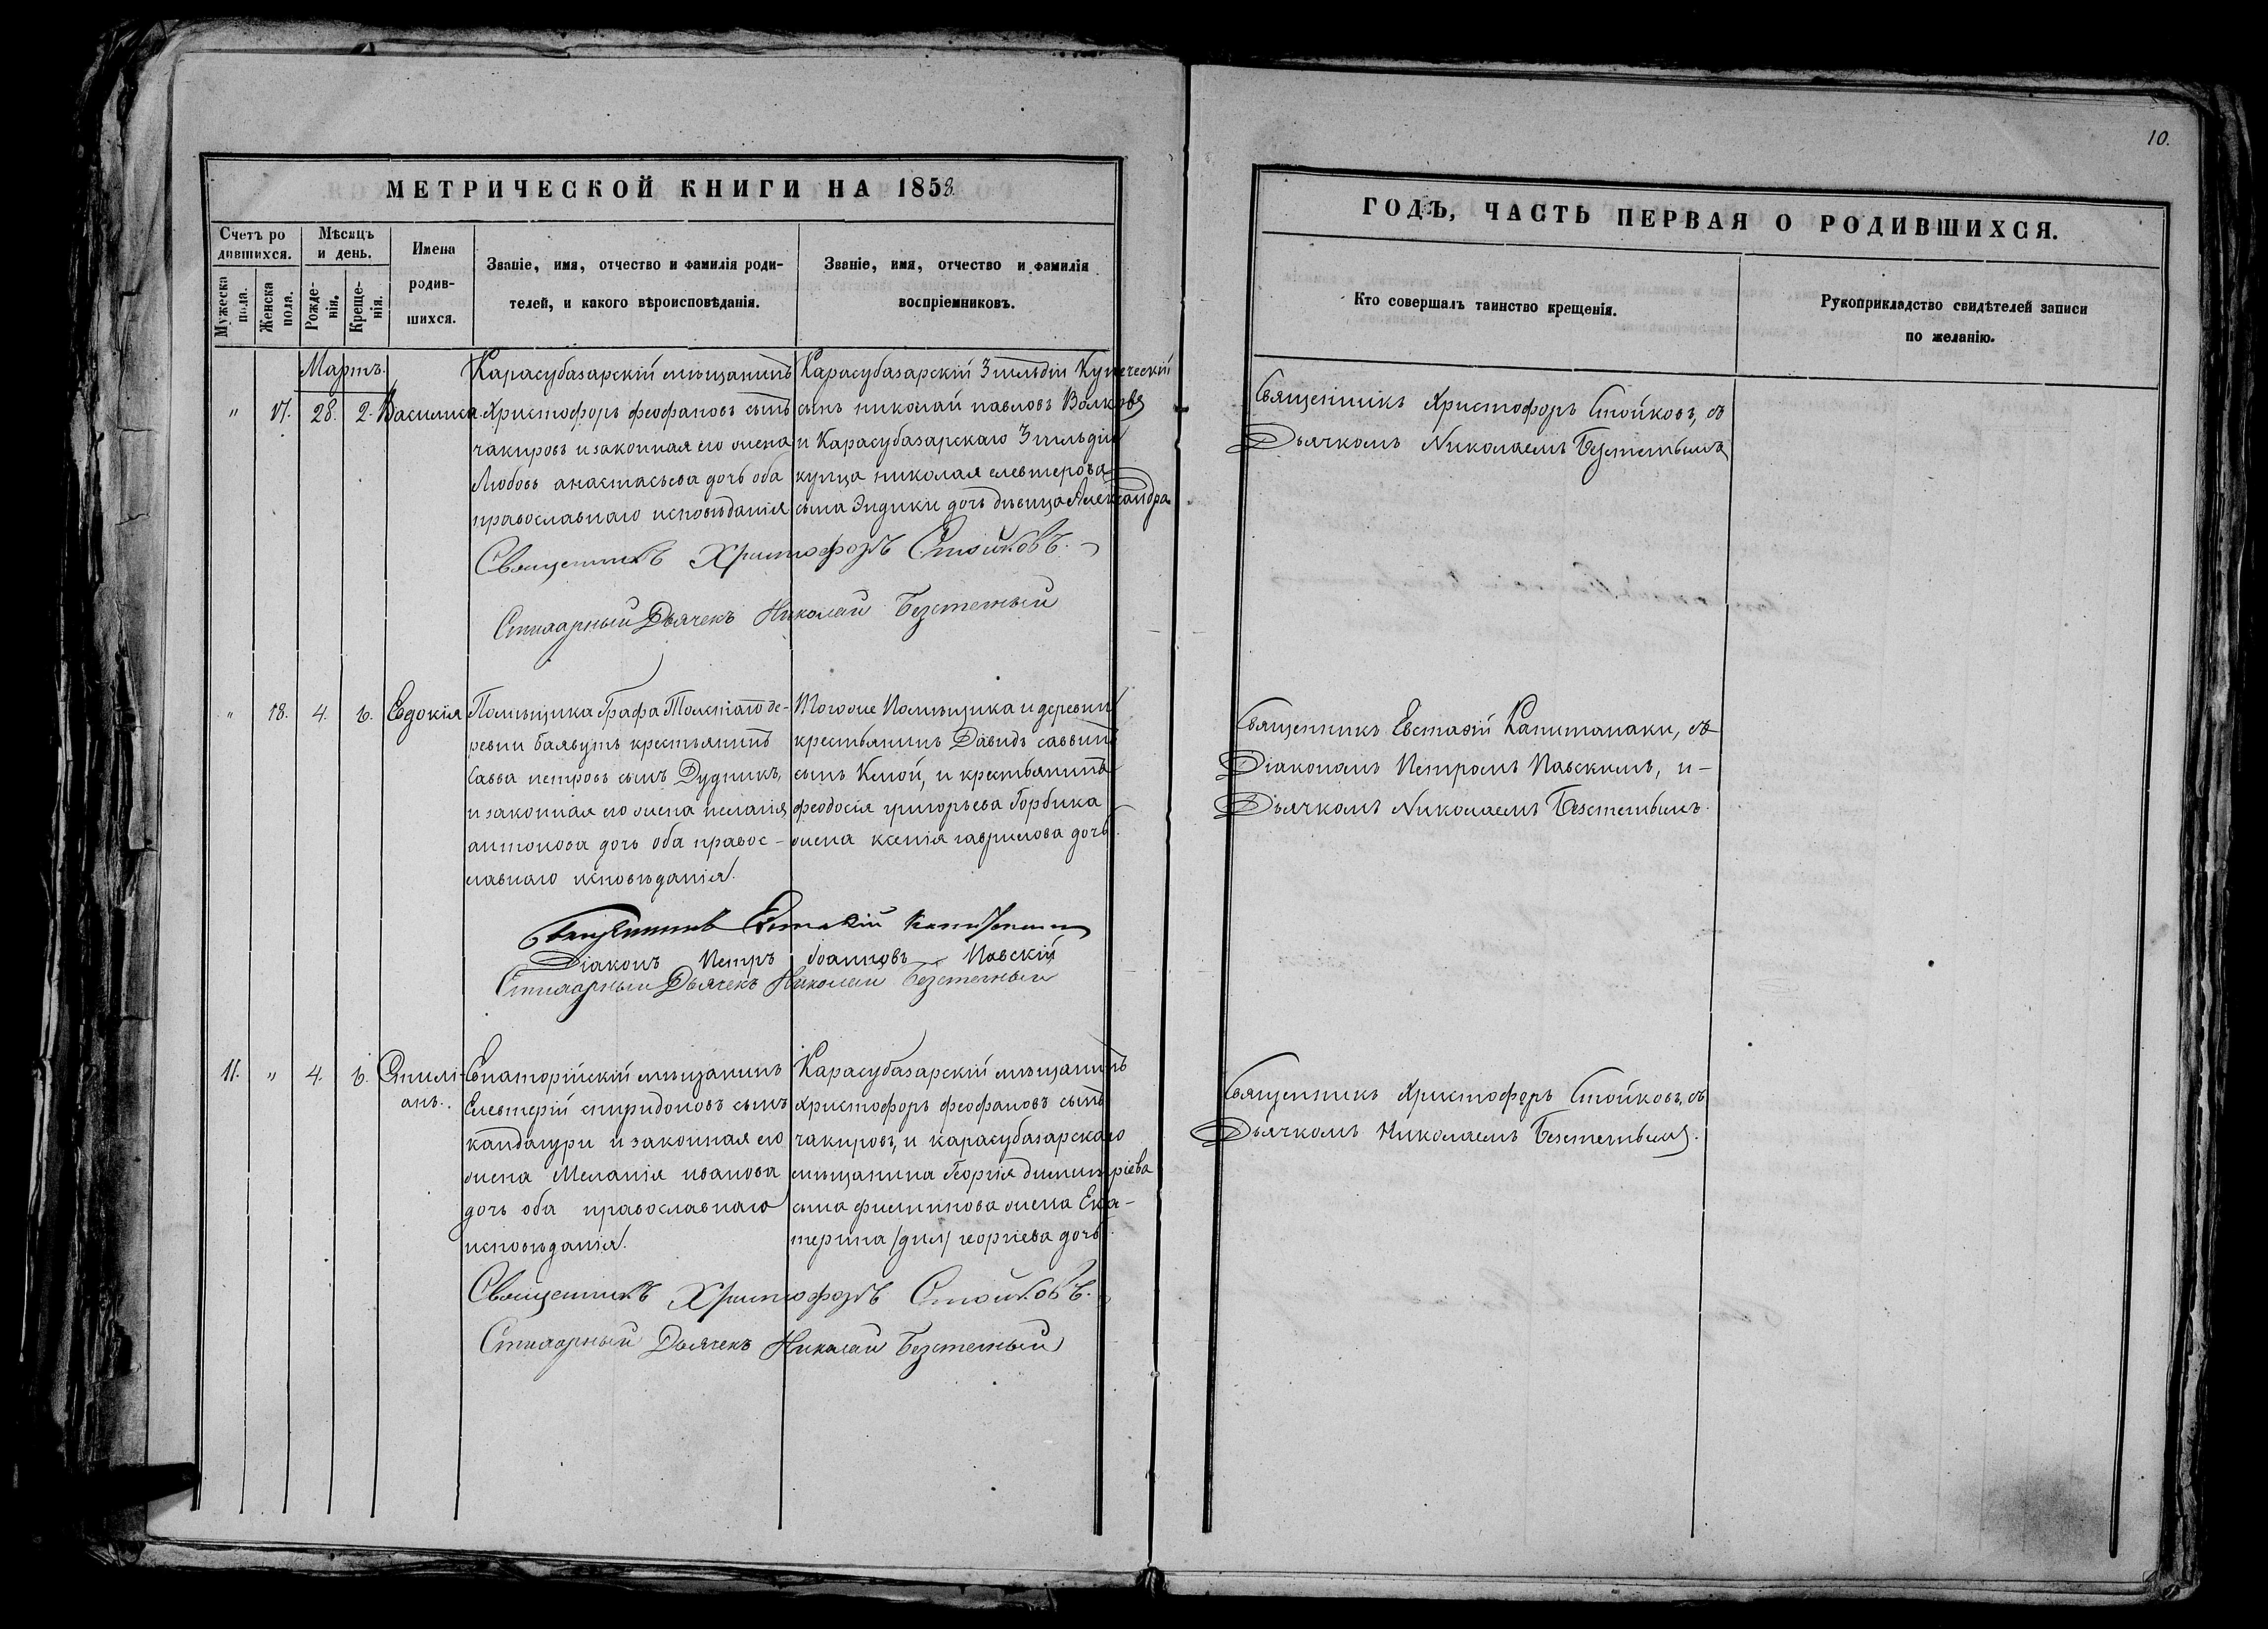 10.
МЕТРИЧЕСКОЙ КНИГИ НА 1858.
Счетъ ро
дившихся.
Мужеска
пола.
Женска
пола.
Мѣсяцъ
и день.
Рожде-
нія.
Креще-
нія.
Имена
родив-
шихся.
Званіе, имя, отчество и фамилія роди-
телей, и какого вѣроисповѣданія.
Званіе, имя, отчество и фамилія
воспріемниковъ.
ГОДЪ, ЧАСТЬ ПЕРВАЯ О РОДИВШИХСЯ.
Кто совершалъ таинство крещенія.
Рукоприкладство свидѣтелей записи
по желанію.
Мартъ.
" 17. 28. 2. Василиса
Карасубазарскій мѣщанинъ
Христофоръ феофановъ сынъ
чакировъ и законная его жена
Любовь анастасьева дочь оба
православнаго исповѣданія
Карасубазарскій 3 гильдіи Купеческій
сынъ николай павловъ Волковъ
и Карасубазарскаго 3 гильдіи
купца николая елевтерова
сына дочь дѣвица Александра
Священникъ Христофоръ Стойковъ, съ
Дьячкомъ Николаемъ Безстетнымъ
Священникъ Христофоръ Стойковъ.
Стихарный Дьячекъ Николай Безстетный
" 18. 4. 6. Евдокія
Помѣщика Графа Толстаго де-
ревни баявутъ крестьянинъ
Савва петровъ сынъ Дудникъ,
и законная его жена пелагія
антонова дочь оба правос-
лавнаго исповѣданія.
Тогоже Помѣщика и деревни
крестьянинъ Давидъ саввинъ
сынъ и крестьянина
феодосія григорьева Горбика
жена ксенія гаврилова дочь.
Священникъ Евстафій Капитанаки, съ
Діакономъ Петромъ Павскимъ, и-
Дьячкомъ Николаемъ Безстетнымъ.
Священникъ Евстафій Капитанаки
Діаконъ Петръ Іоанновъ Павскій
Стихарный Дьячекъ Николай Безстетный
11. " 4. 6. Стилі-
анъ.
Евпаторійскій мѣщанинъ
Елевтерій спиридоновъ сынъ
кандагури и законная его
жена Меланія иванова
дочь оба православнаго
исповѣданія.
Карасубазарскій мѣщанинъ
Христофоръ феофановъ сынъ
чакировъ, и карасубазарскаго
мѣщанина Георгія димитріева
сына филиппова жена Ека-
терина георгіева дочь.
Священникъ Христофоръ Стойковъ, съ
Дьячкомъ Николаемъ Безстетнымъ.
Священникъ Христофоръ Стойковъ.
Стихарный Дьячекъ Николай Безстетный